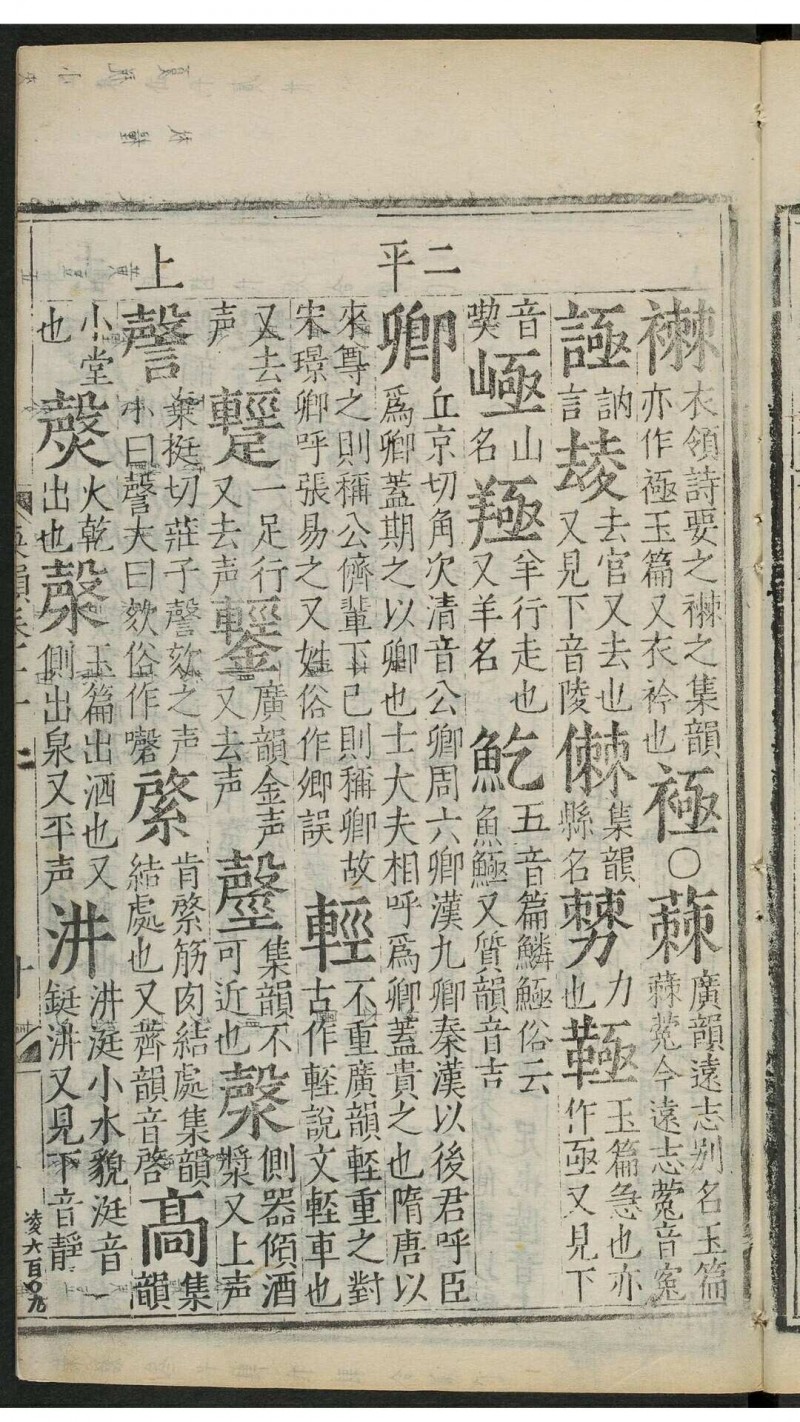 二平
上
襋衣領詩要之襋之集韻
亦作極玉篇又衣衿也○蕀廣韻遠志别名玉篇
蕀蒬今遠志蒬音寃
訥言去官又去也
又見下音陵集韻縣名力也玉篇急也亦
作亟又見下
音喫山名羊行走也
又羊名五音篇鱗俗云
魚又質韻音吉
卿丘京切角次清音公卿周六卿漢九卿秦漢以後君呼臣
爲卿蓋期之以卿也士大夫相呼爲卿蓋貴之也隋唐以
來尊之則稱公儕輩下己則稱卿故
宋璟卿呼張易之又姓俗作卿誤輕不重廣韻輕重之對
古作輕說文輕車也
又去声𨇮一足行
又去声鑋廣韻金声
又去声集韻不可近也漀側器傾酒
漿又上声
謦棄挺切莊子謦欬之声
小曰謦大曰欬俗作綮肯綮筋肉結處集韻
結處也又薺韻音啓高集韻
小堂也火乾出也漀玉篇出酒也又
側出泉又平声汫汫涏小水貌涏音
鋌汫又見下音靜
凌六百〇九